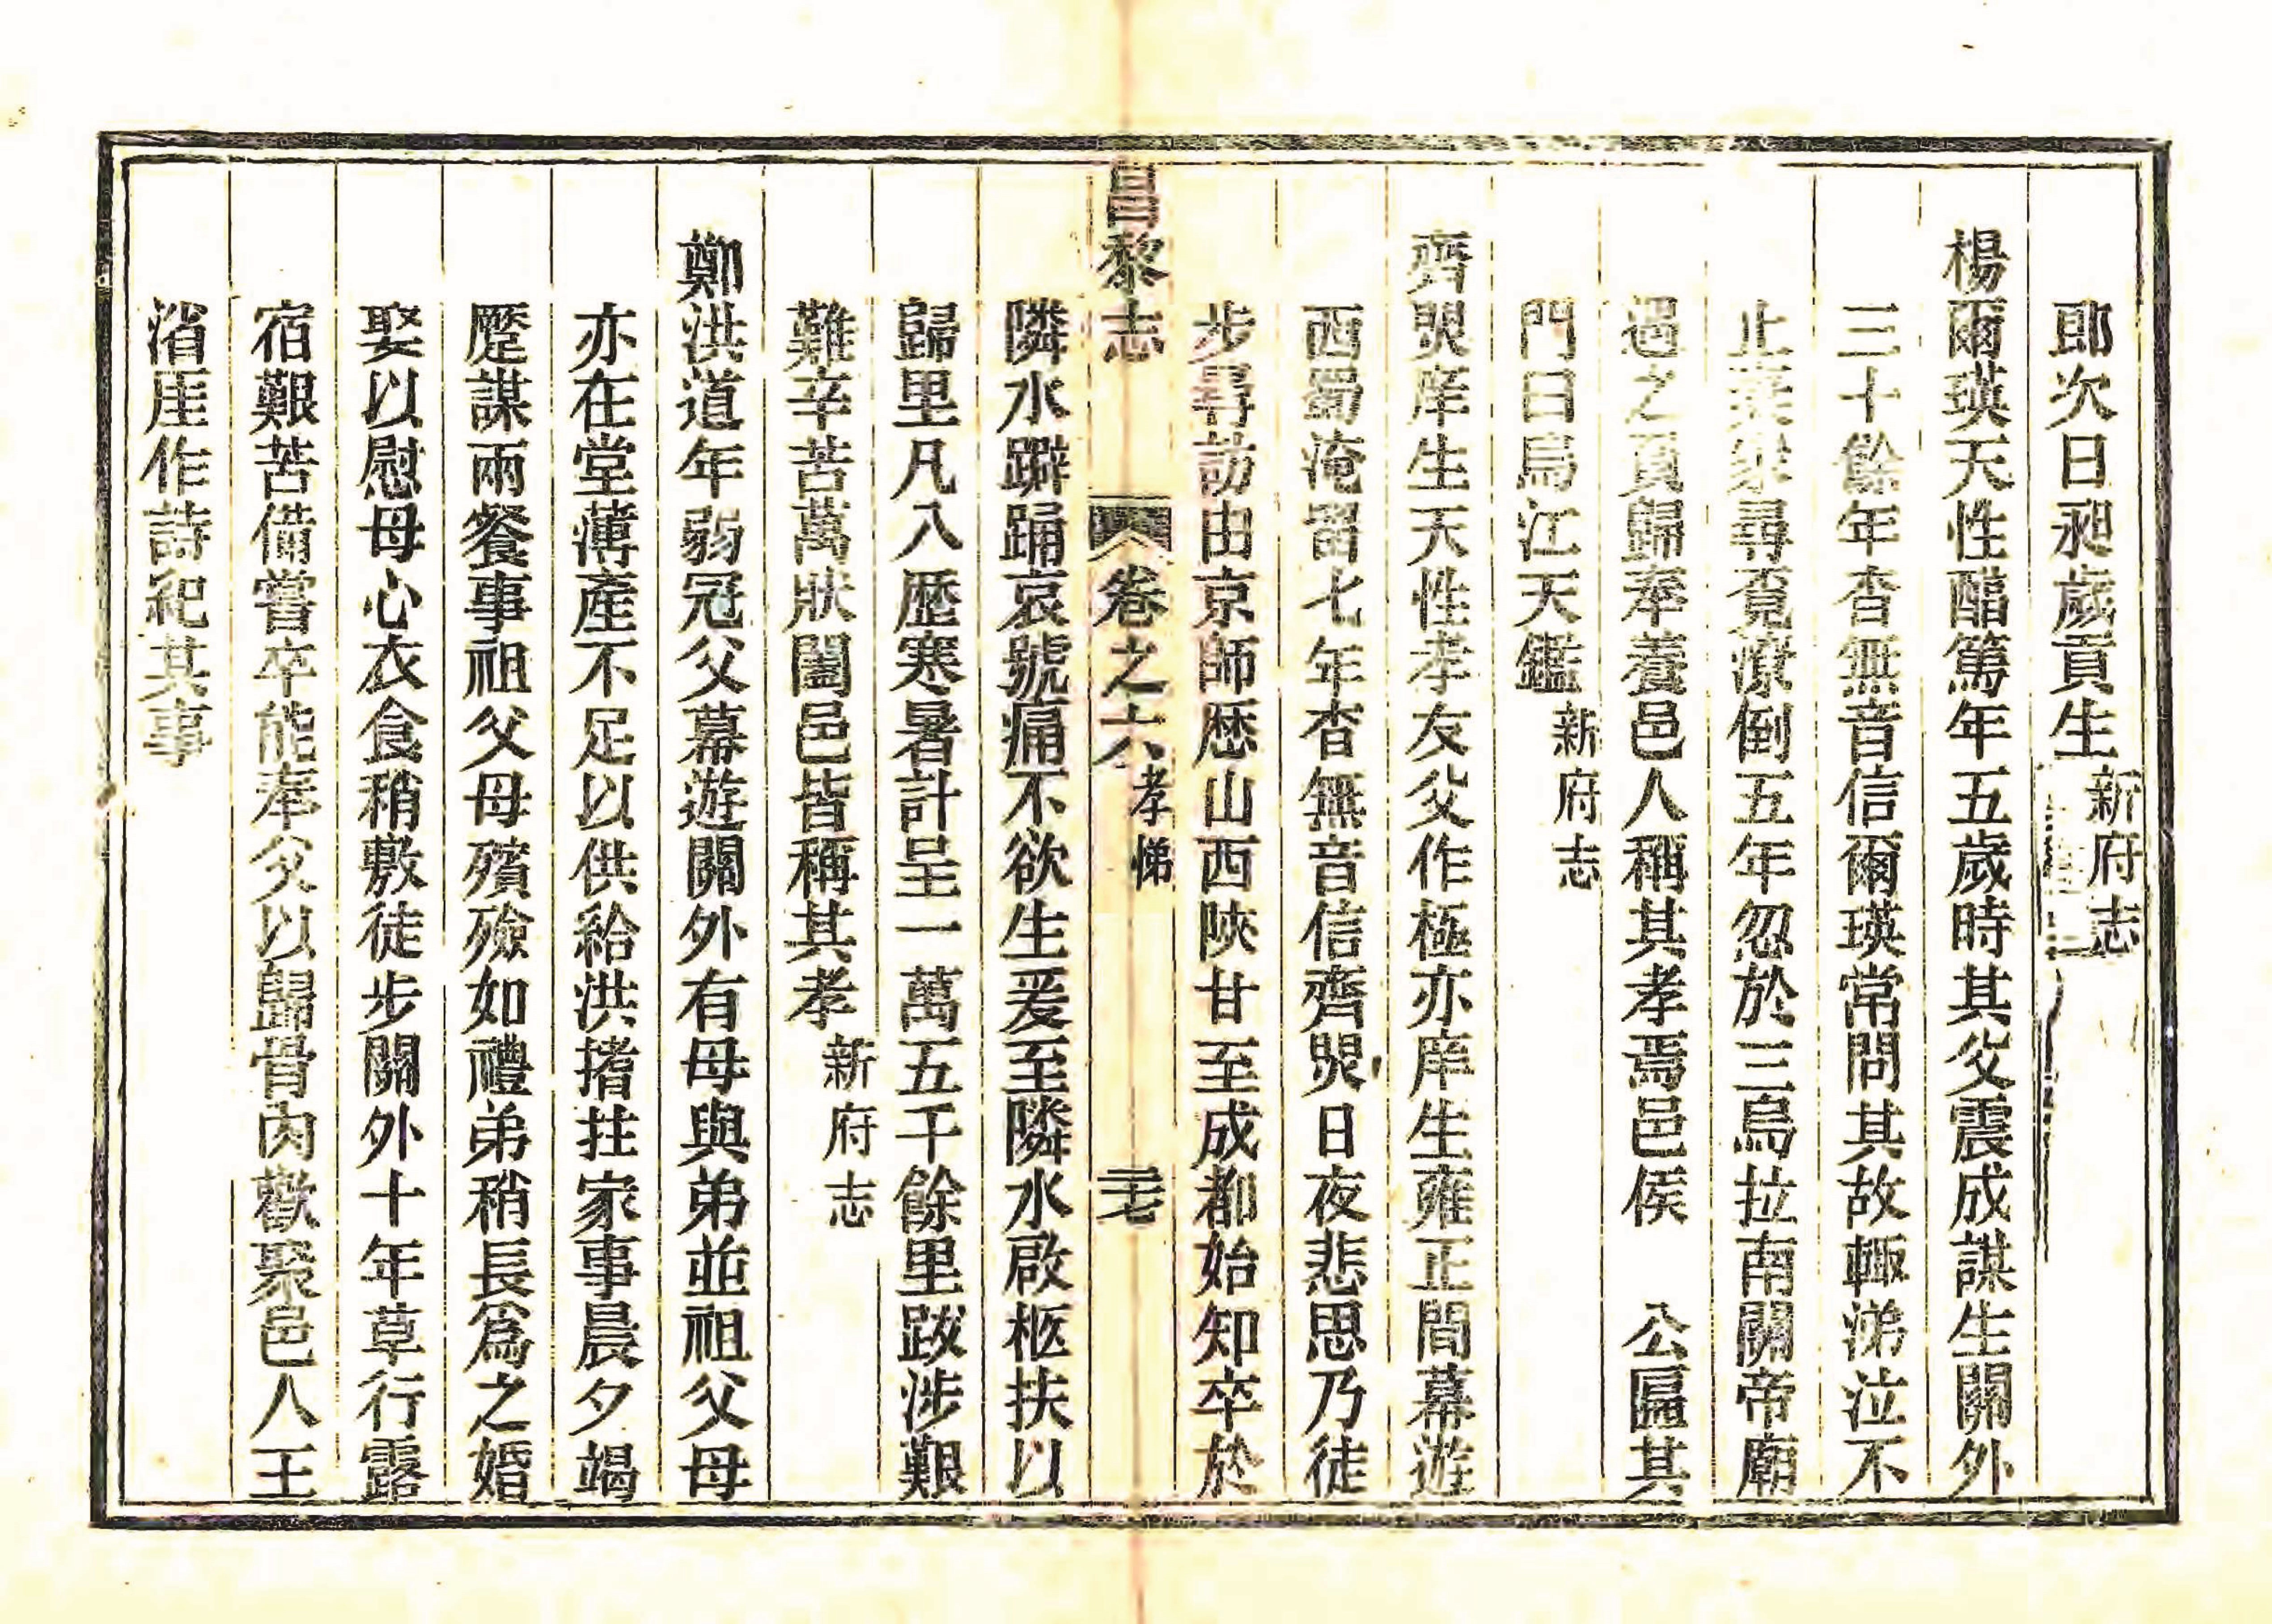 郎次日昶歲貢生新府志
楊爾瑛天性酷篤年五歲時其父震成謀生關外
三十餘年杳無音信爾瑛常問其故輙涕泣不
止棄家尋覓潦倒五年忽於三烏拉南關帝廟
遇之頁歸奉養邑人稱其孝焉邑侯 公匾其
門曰烏江天鑑新府志
齊煚庠生天性孝友父作極亦庠生雍正間幕遊
西蜀淹留七年杳無音信齊煚日夜悲思乃徒
步尋訪由京師歷山西陝甘至成都始知卒於
昌黎志 卷之六 孝悌 二十七
隣水躃踊哀號痛不欲生爰至隣水啟柩扶以
歸里凡八歷寒暑計呈一萬五千餘里跋涉艱
難辛苦萬狀闔邑皆稱其孝新府志
鄭洪道年弱冠父幕遊關外有母與弟並祖父母
亦在堂薄產不足以供給洪揩拄家事晨夕竭
蹷謀兩餐事祖父母殯殮如禮弟稍長爲之婚
娶以慰母心衣食稍敷徒步關外十年草行露
宿艱苦備嘗卒能奉父以歸骨肉歡聚邑人王
消厓作詩紀其事